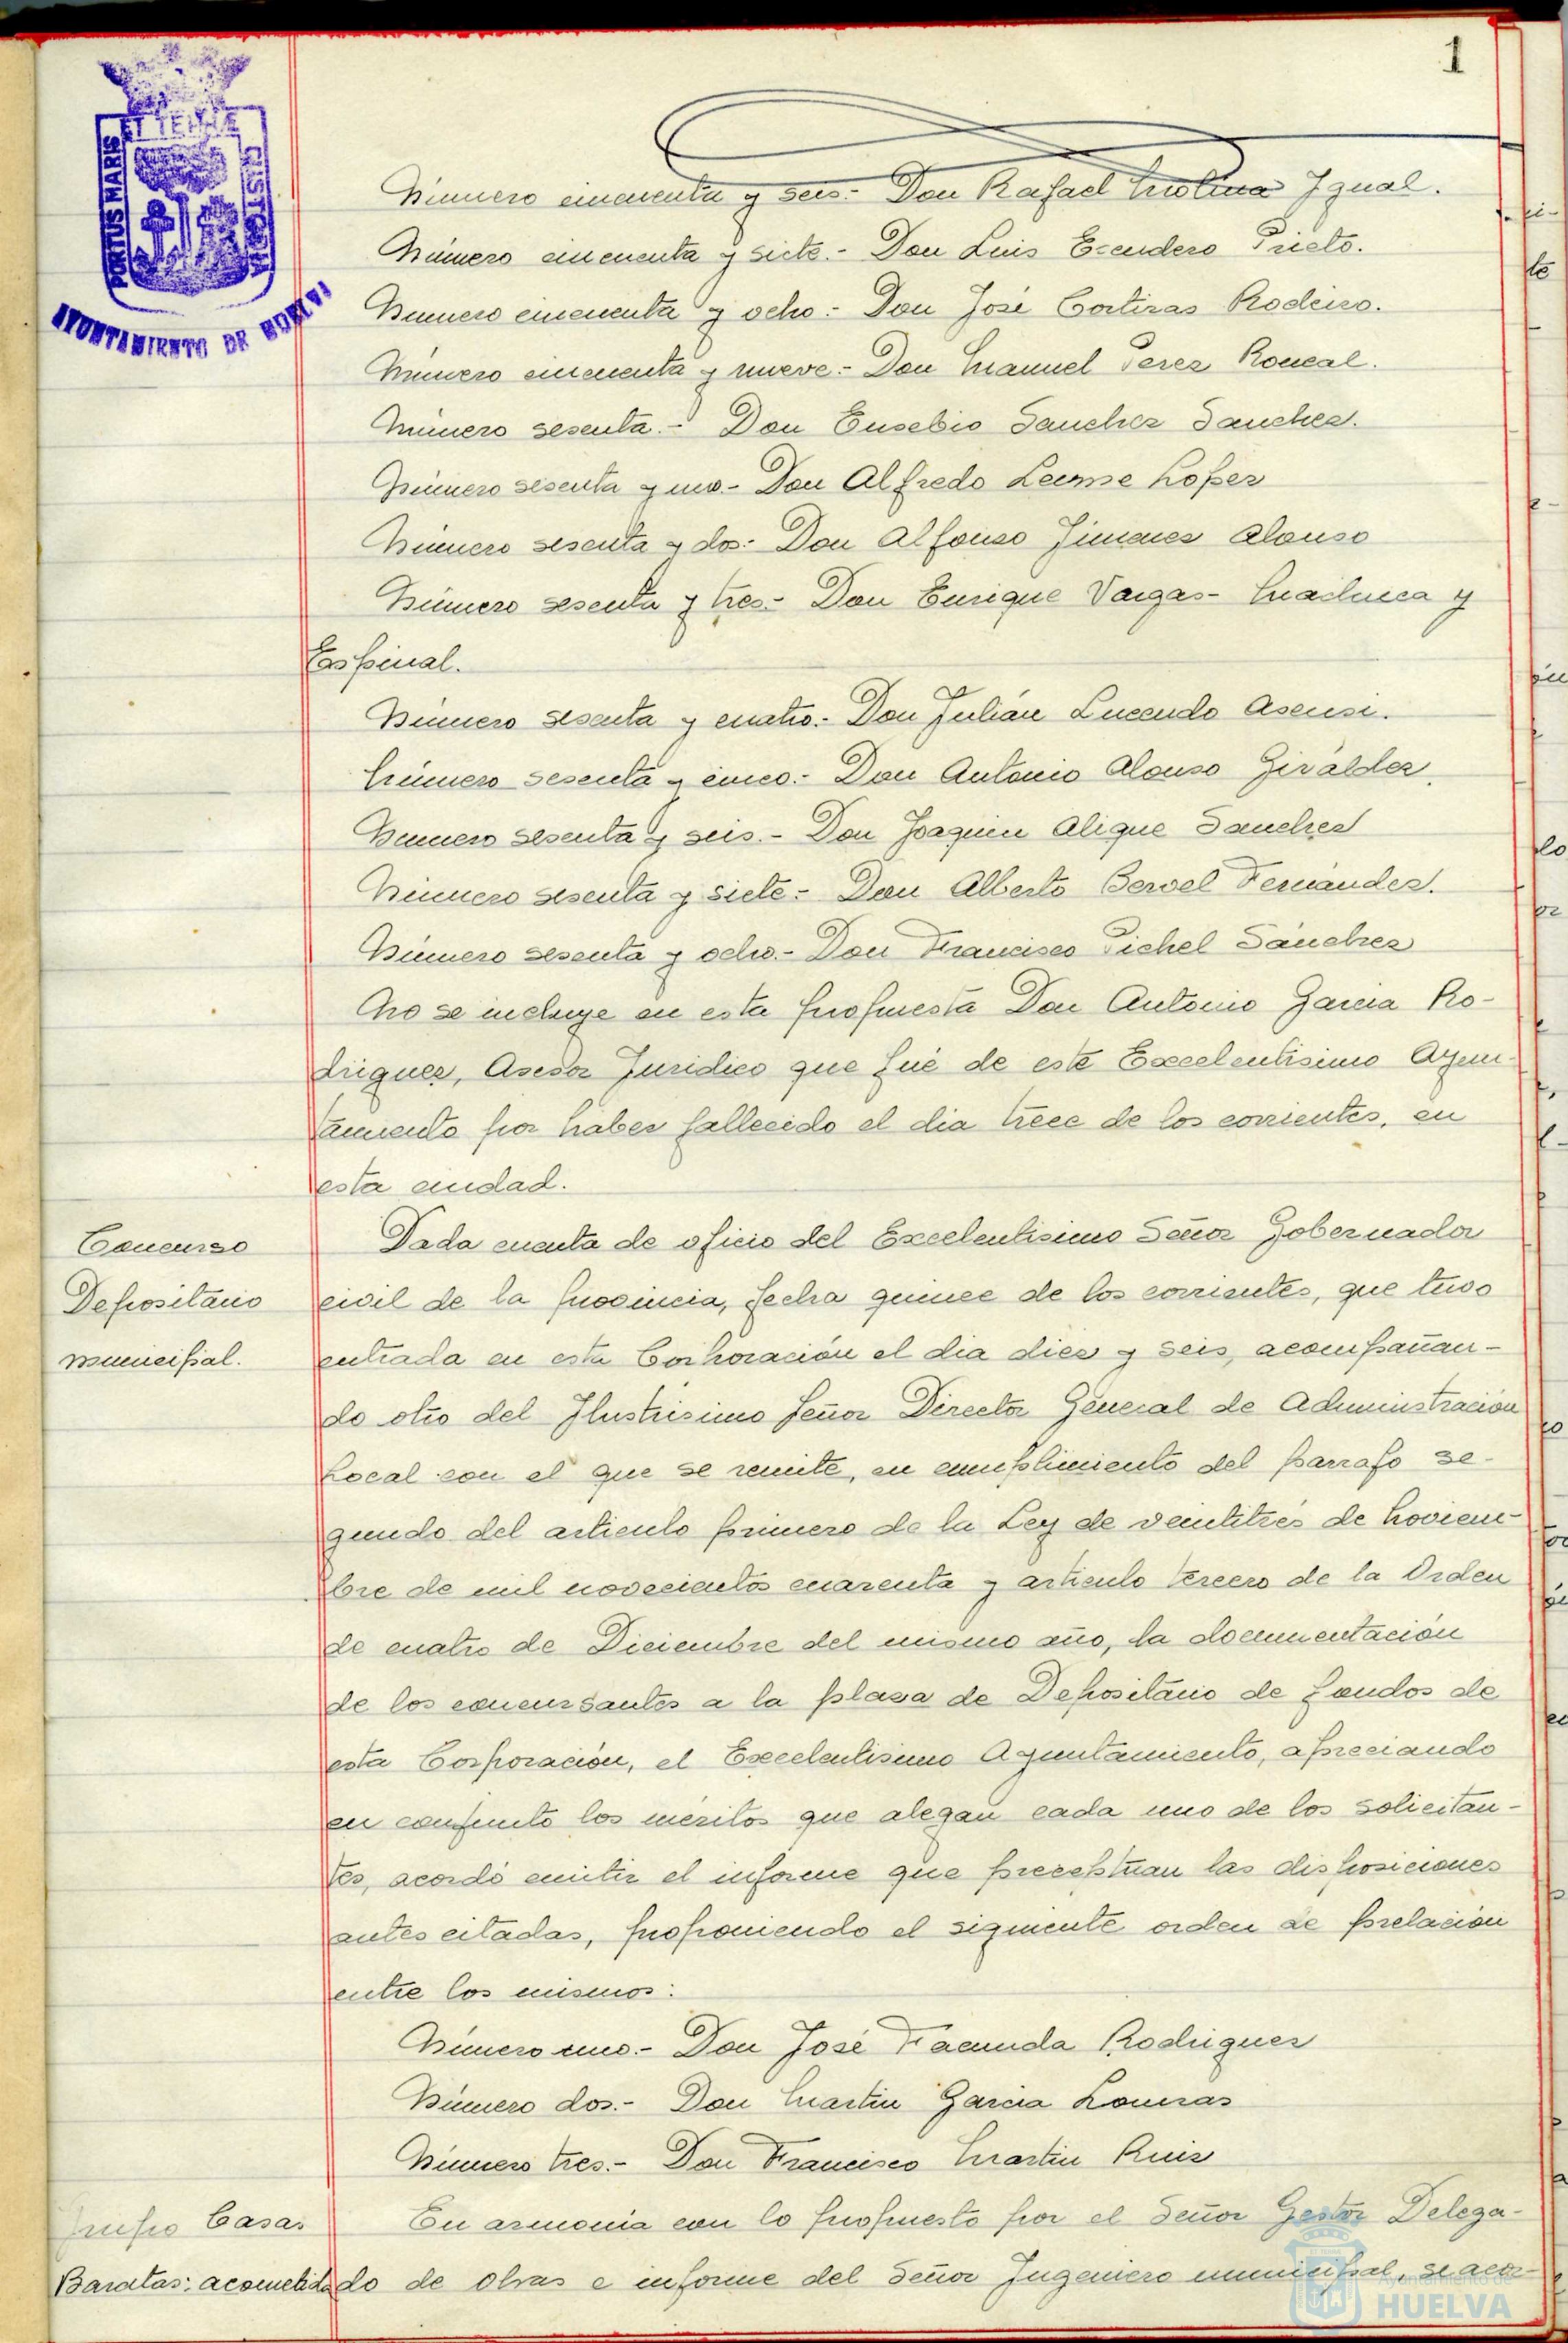 1
PORTUS MARIS ET TERRÆ CUSTODIA
AYUNTAMIENTO DE HUELVA
Número cincuenta y seis.- Don Rafael Molina Igual.
Número cincuenta y siete.- Don Luis Escudero Prieto.
Numero cincuenta y ocho.- Don José Cortizas Rodeiro.
Número cincuenta y nueve.- Don Manuel Perez Roncal.
Número sesenta.- Don Eusebio Sanchez Sanchez.
Número sesenta y uno.- Don Alfredo Leerme Lopez
Número sesenta y dos.- Don Alfonso Jimenez Alonso
Número sesenta y tres.- Don Enrique Vargas-Machuca y
Espinal.
Número sesenta y cuatro.- Don Julián Lucendo Asensi.
Número sesenta y cinco.- Don Antonio Alonso Giráldez.
Numero sesenta y seis.- Don Joaquin Alique Sanchez
Número sesenta y siete.- Don Alberto Bervel Fernández.
Número sesenta y ocho.- Don Francisco Pichel Sánchez
No se incluye en esta propuesta Don Antonio Garcia Ro-
driguez, Asesor Juridico que fué de este Excelentísimo Ayun-
tamiento por haber fallecido el dia trece de los corrientes, en
esta ciudad.
Concurso
Depositario
municipal.
Dada cuenta de oficio del Excelentisimo Señor Gobernador
civil de la provincia, fecha quince de los corrientes, que tuvo
entrada en esta Corporación el dia diez y seis, acompañan-
do otro del Ilustrisimo Señor Director General de Administración
Local con el que se remite, en cumplimiento del parrafo se-
gundo del articulo primero de la Ley de veintitrés de Noviem-
bre de mil novecientos cuarenta y articulo tercero de la Orden
de cuatro de Diciembre del mismo año, la documentación
de los concursantes a la plaza de Depositario de fondos de
esta Corporación, el Excelentisimo Ayuntamiento, apreciando
en conjunto los méritos que alegan cada uno de los solicitan-
tes, acordó emitir el informe que preceptúan las disposiciones
antes citadas, proponiendo el siguiente orden de prelación
entre los mismos:
Número uno.- Don José Facunda Rodriguez
Número dos.- Don Martin Garcia Lomas
Número tres.- Don Francisco Martin Ruiz
Grupo Casas
Baratas: acometida
En armonia con lo propuesto por el Señor Gestor Delega-
do de obras e informe del Señor Ingeniero municipal, se acor-
Ayuntamiento de
HUELVA